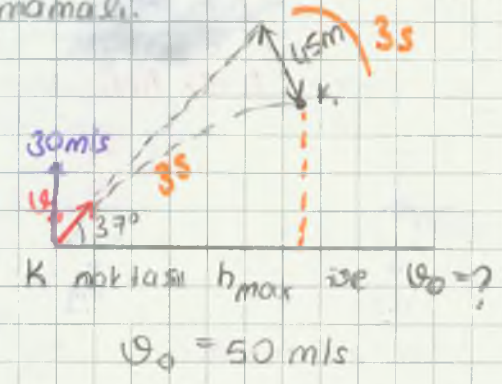 mamalı.
45m
3s
K
30m/s
3s
ϑ₀
37°
K noktası hmax ise ϑ₀=?
ϑ₀ = 50 m/s